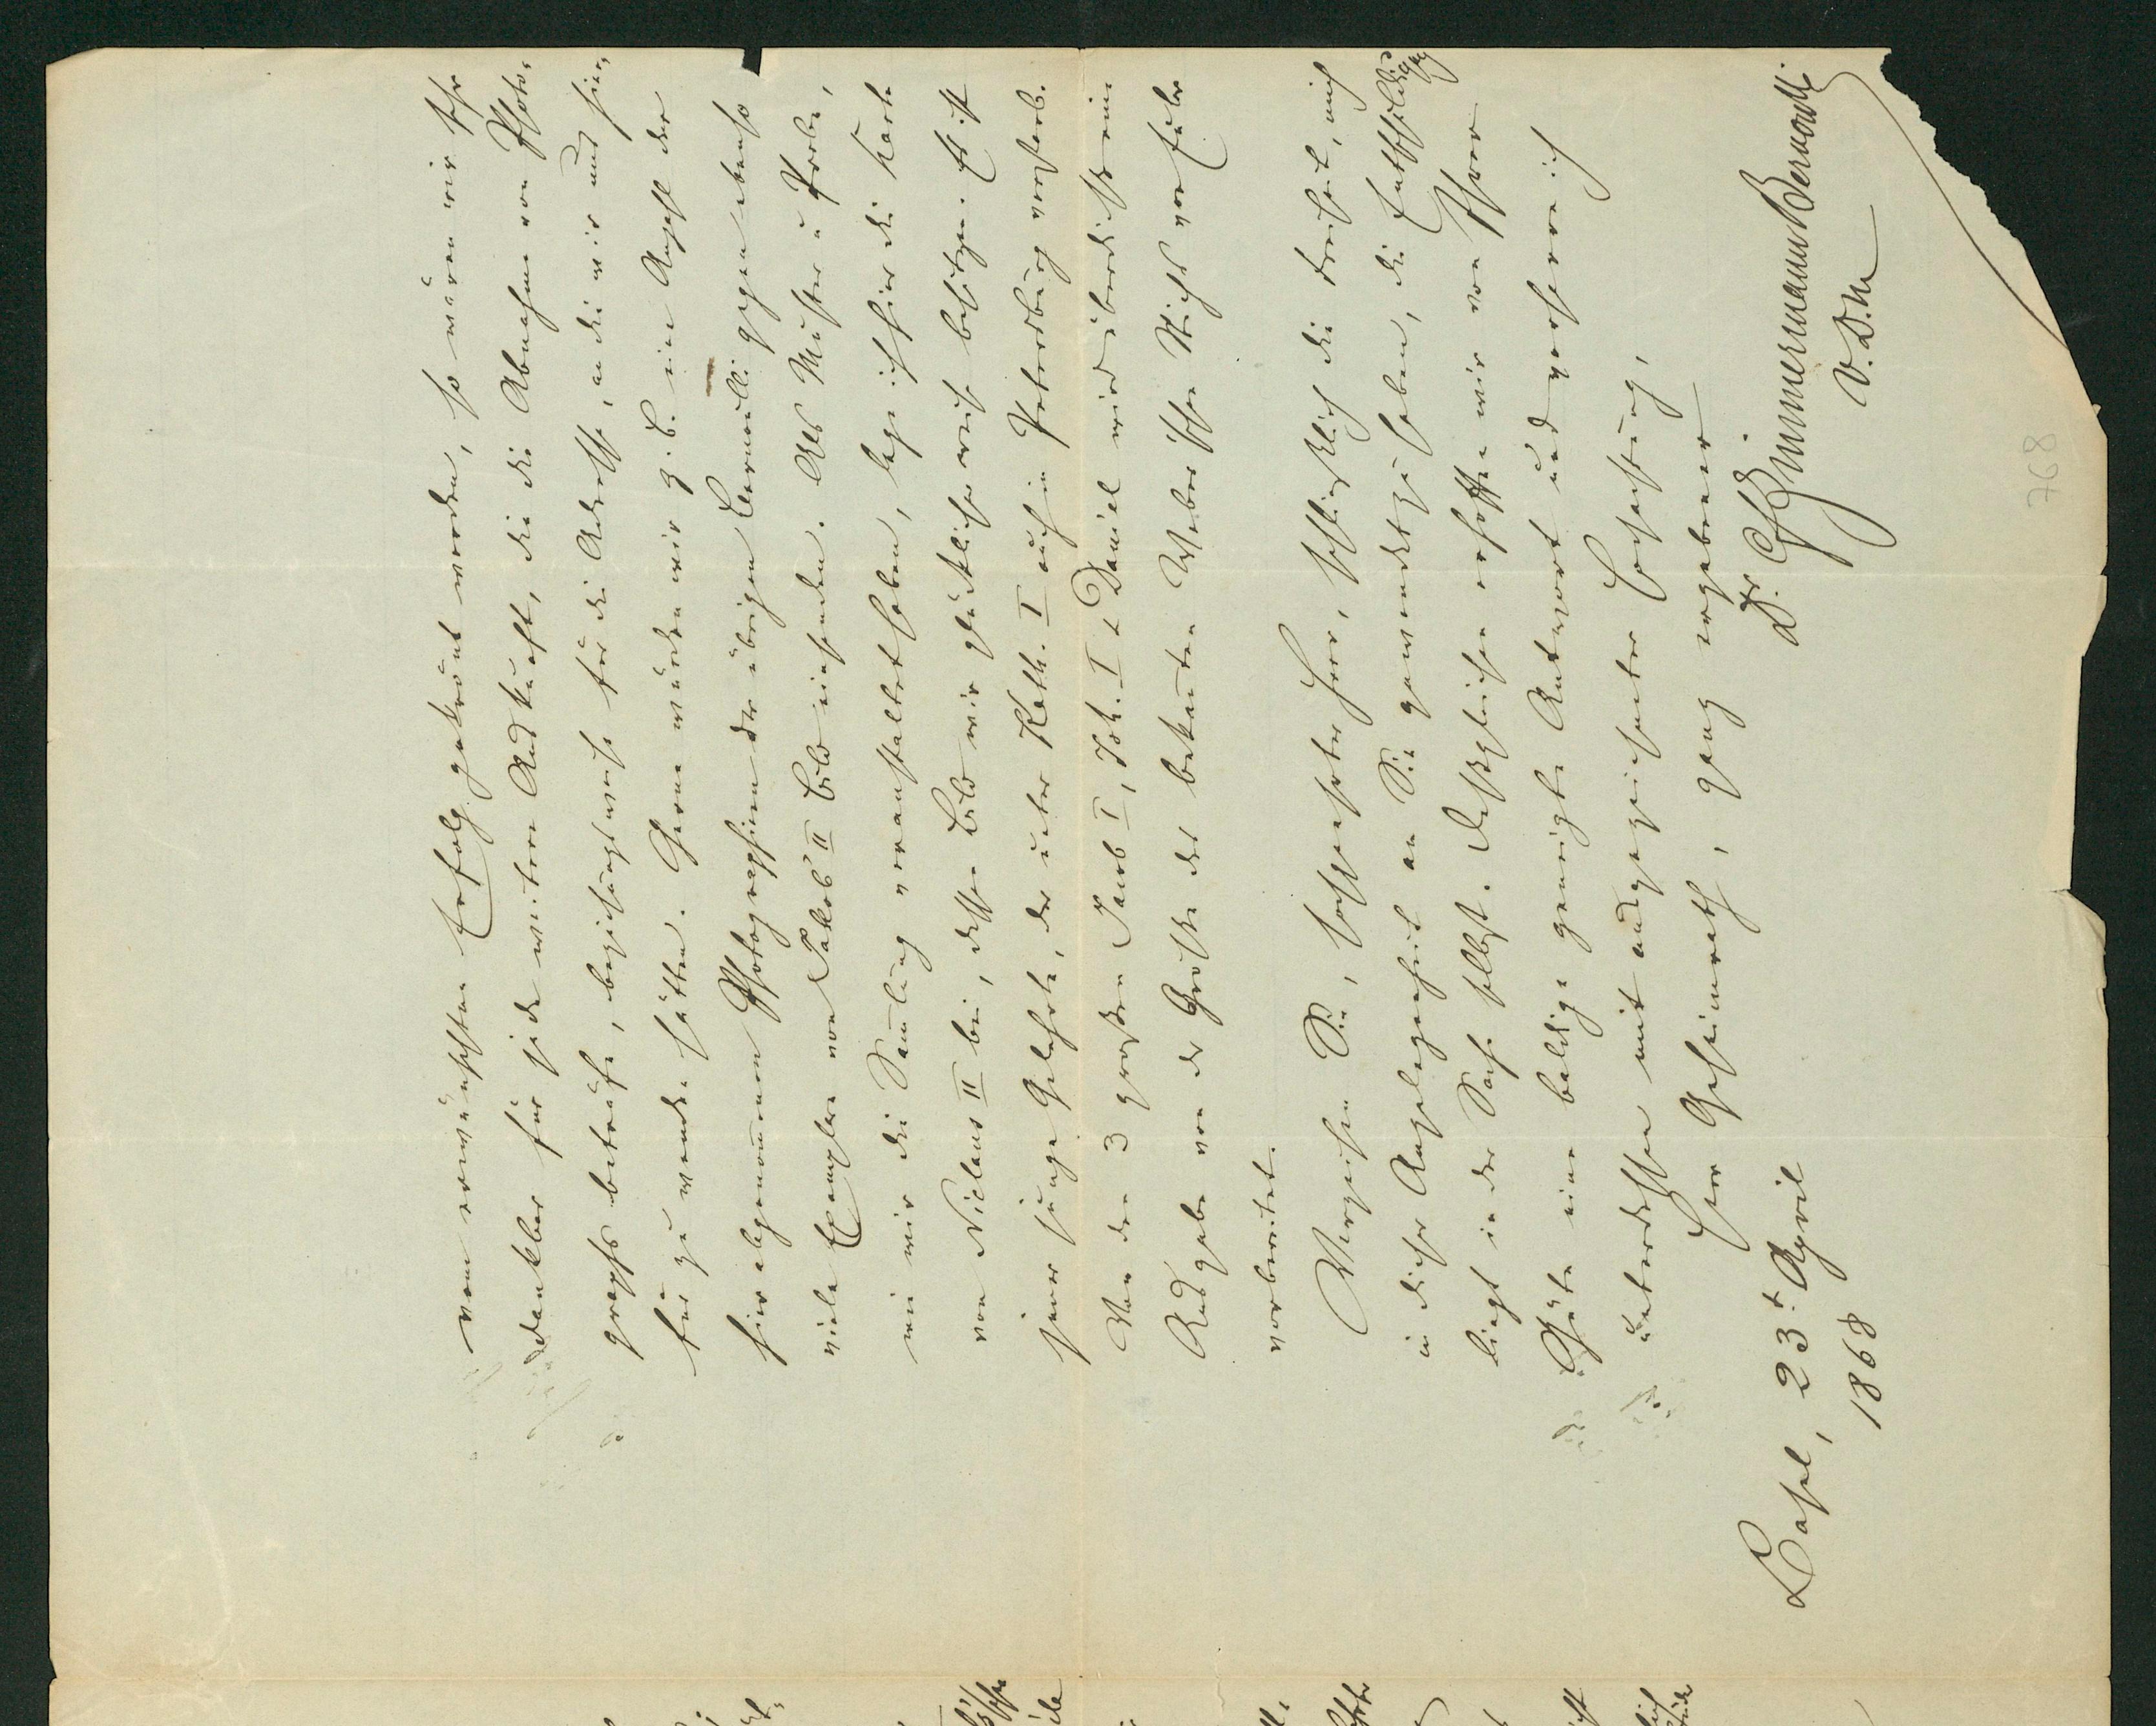 vom erwünschten Erfolg gekrönt werden, so wären wir sehr
dankbar für jede weitere Auskunft, die die Abnahme von Photo-
graphs beträfe, beziehungsweise für die Adresse, an die wir uns hier-
für zu wenden hätten. Gerne würden wir z. B. eine Anzahl der
hier abgenommenen Photographien der übrigen Bernoulli gegen ebenso
viele Exemplare von Jakob's II Bild einsenden. Als Muster u Probe,
wie wir die Samlung veranstaltet haben, lege ich hier die Karte
von Niclaus II bei, dessen Bild wir glücklicherweise besitzen. Er ist
jener junge Gelehrte, der unter Kath. I auch in Petersburg verstarb.
Von den 3 großen Jacob I, Joh. I & Daniel wird überdiess eine
Ausgabe von der Größe des bekanten Weber'schen Stichs von Euler
vorbereitet.
Verzeihen Sie, hochgeehrter Herr, schließlich die Freiheit, mich
in dieser Angelegenheit an Sie gewendet zu haben, die Entschuldigung
liegt in der Sache selbst. Dessgleichen erhoffen wir von Ihrer
Güte eine baldige geneigte Antwort und verharre ich
unterdessen mit ausgezeichneter Hochachtung,
Herr Geheimrath, ganz ergebener
Dr. Zimmermann Bernoulli
V. D. M.
Basel, 23t April
1868
768